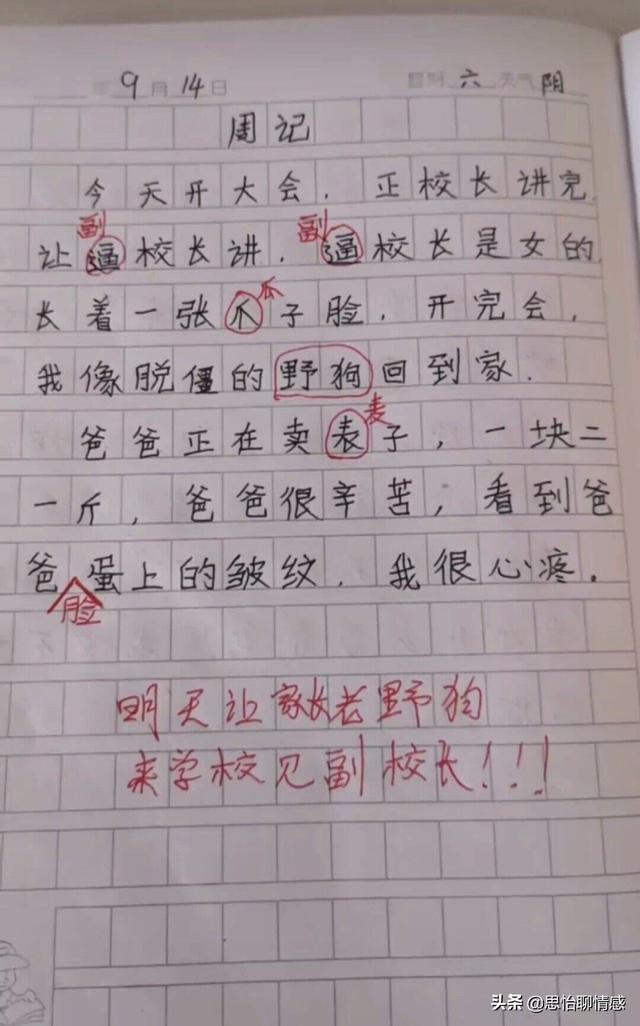 年9月14日 星期六 天气阴
周记
今天开大会．正校长讲完．
副 副
让逼校长讲．逼校长是女的．
瓜
长着一张爪子脸．开完会，
我像脱僵的野狗回到家．
麦
爸爸正在卖表子，一块二
一斤，爸爸很辛苦，看到爸
爸蛋上的皱纹．我很心疼．
脸
明天让家长老野狗
来学校见副校长！！！
头条 @思怡聊情感